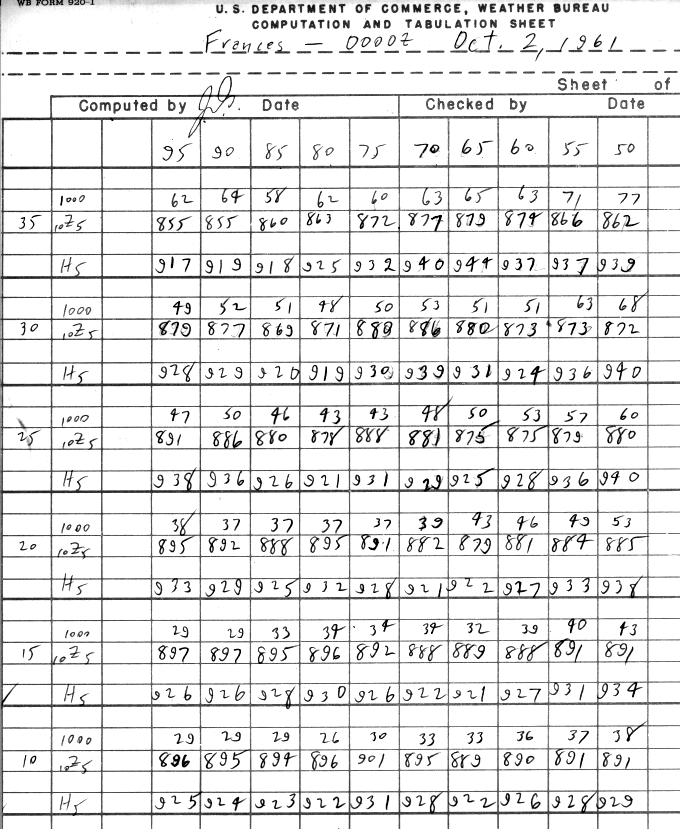 WB FORM 920-1
U. S. DEPARTMENT OF COMMERCE, WEATHER BUREAU
COMPUTATION AND TABULATION SHEET
Frances — 0000Z Oct. 2, 1961
Sheet of
Computed by Date Checked by Date
95 90 85 80 75 70 65 60 55 50
1000 62 64 58 62 60 63 65 63 71 77
35 10Z5 855 855 860 863 872 877 879 874 866 862
H5 917 919 918 925 932 940 944 937 937 939
1000 49 52 51 48 50 53 51 51 63 68
30 10Z5 879 877 869 871 880 886 880 873 873 872
H5 928 929 920 919 930 939 931 924 936 940
1000 47 50 46 43 43 48 50 53 57 60
25 10Z5 891 886 880 878 888 881 875 875 879 880
H5 938 936 926 921 931 929 925 928 936 940
1000 38 37 37 37 37 39 43 46 49 53
20 10Z5 895 892 888 895 891 882 879 881 884 885
H5 933 929 925 932 928 921 922 927 933 938
1000 29 29 33 34 34 34 32 39 40 43
15 10Z5 897 897 895 896 892 888 889 888 891 891
H5 926 926 928 930 926 922 921 927 931 934
1000 29 29 29 26 30 33 33 36 37 38
10 10Z5 896 895 894 896 901 895 889 890 891 891
H5 925 924 923 922 931 928 922 926 928 929